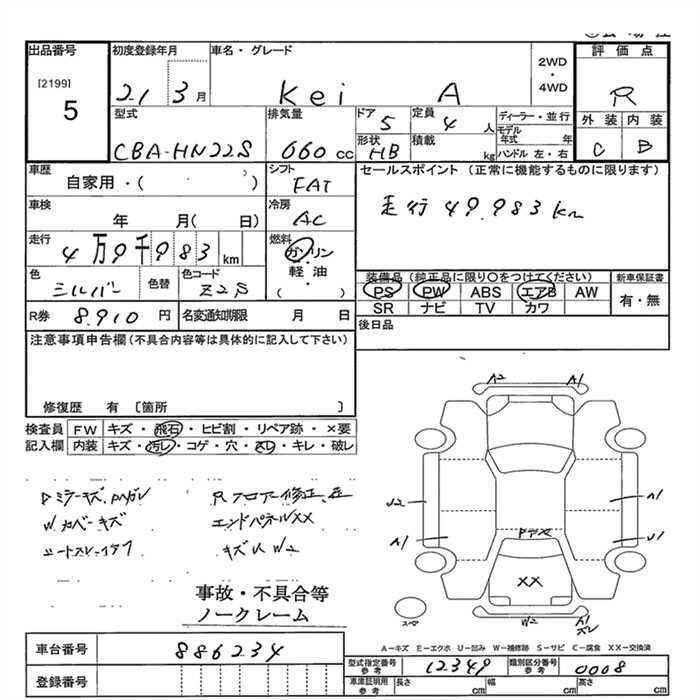 出品番号
[2199]
5
初度登録年月
21 3月
車名・グレード
Kei A
2WD
・
4WD
評価点
R
型式
CBA-HN22S
排気量
660 cc
ドア
5
定員
4 人
形状
HB
積載
kg
ディーラー・並行
モデル年式 年
ハンドル 左・右
外装 内装
C B
車歴
自家用・( )
シフト
FAT
セールスポイント (正常に機能するものに限ります)
走行 49.983km
車検
年 月( 日)
冷房
AC
走行
4万9千983km
燃料
ガソリン
軽油
( ・ )
色
シルバー
色替
色コード
Z2S
装備品(純正品に限り○をつけてください)
PS PW ABS エアB AW
SR ナビ TV カワ
新車保証書
有・無
R券 8.910 円
名変通知期限 月 日
後日品
注意事項申告欄(不具合内容等は具体的に記入して下さい)
修復歴 有 〔箇所 〕
検査員
記入欄
FW キズ・飛石・ヒビ割・リペア跡・×要
内装 キズ・汚レ・コゲ・穴・スレ・キレ・破レ
Wカバーキズ
Rフロアー修正、歪
エンドパネルXX
キズ凹W2
A2 A1
U2
A1
A1
U1
XX
W2
A1
スレ
事故・不具合等
ノークレーム
A-キズ E-エクボ U-凹み W-補修跡 S-サビ C-腐食 XX-交換済
車台番号
886234
登録番号
型式指定番号
参考
12349
類別区分番号
参考
0008
車庫証明用
参考
長さ cm
幅 cm
高さ cm